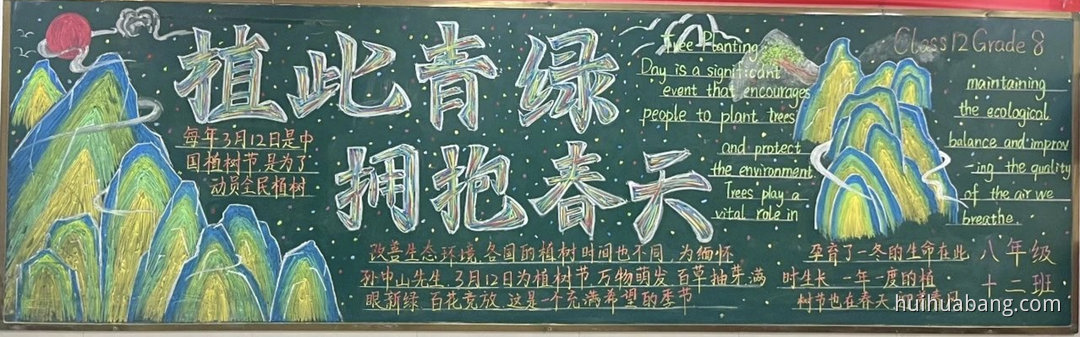 植此青绿
拥抱春天
每年3月12日是中
国植树节是为了
动员全民植树
Tree Planting
Day is a significant
event that encourages
people to plant trees
and protect
the environment
Trees play a
vital role in
Class 12 Grade 8
maintaining
the ecological
balance and improv
-ing the quality
of the air we
breathe.
改善生态环境,各国的植树时间也不同,为缅怀
孙中山先生,3月12日为植树节万物萌发 百草抽芽,满
眼新绿 百花竞放 这是一个充满希望的季节
孕育了一冬的生命在此
时生长 一年一度的植
树节也在春天
八年级
十二班
huihuabang.com